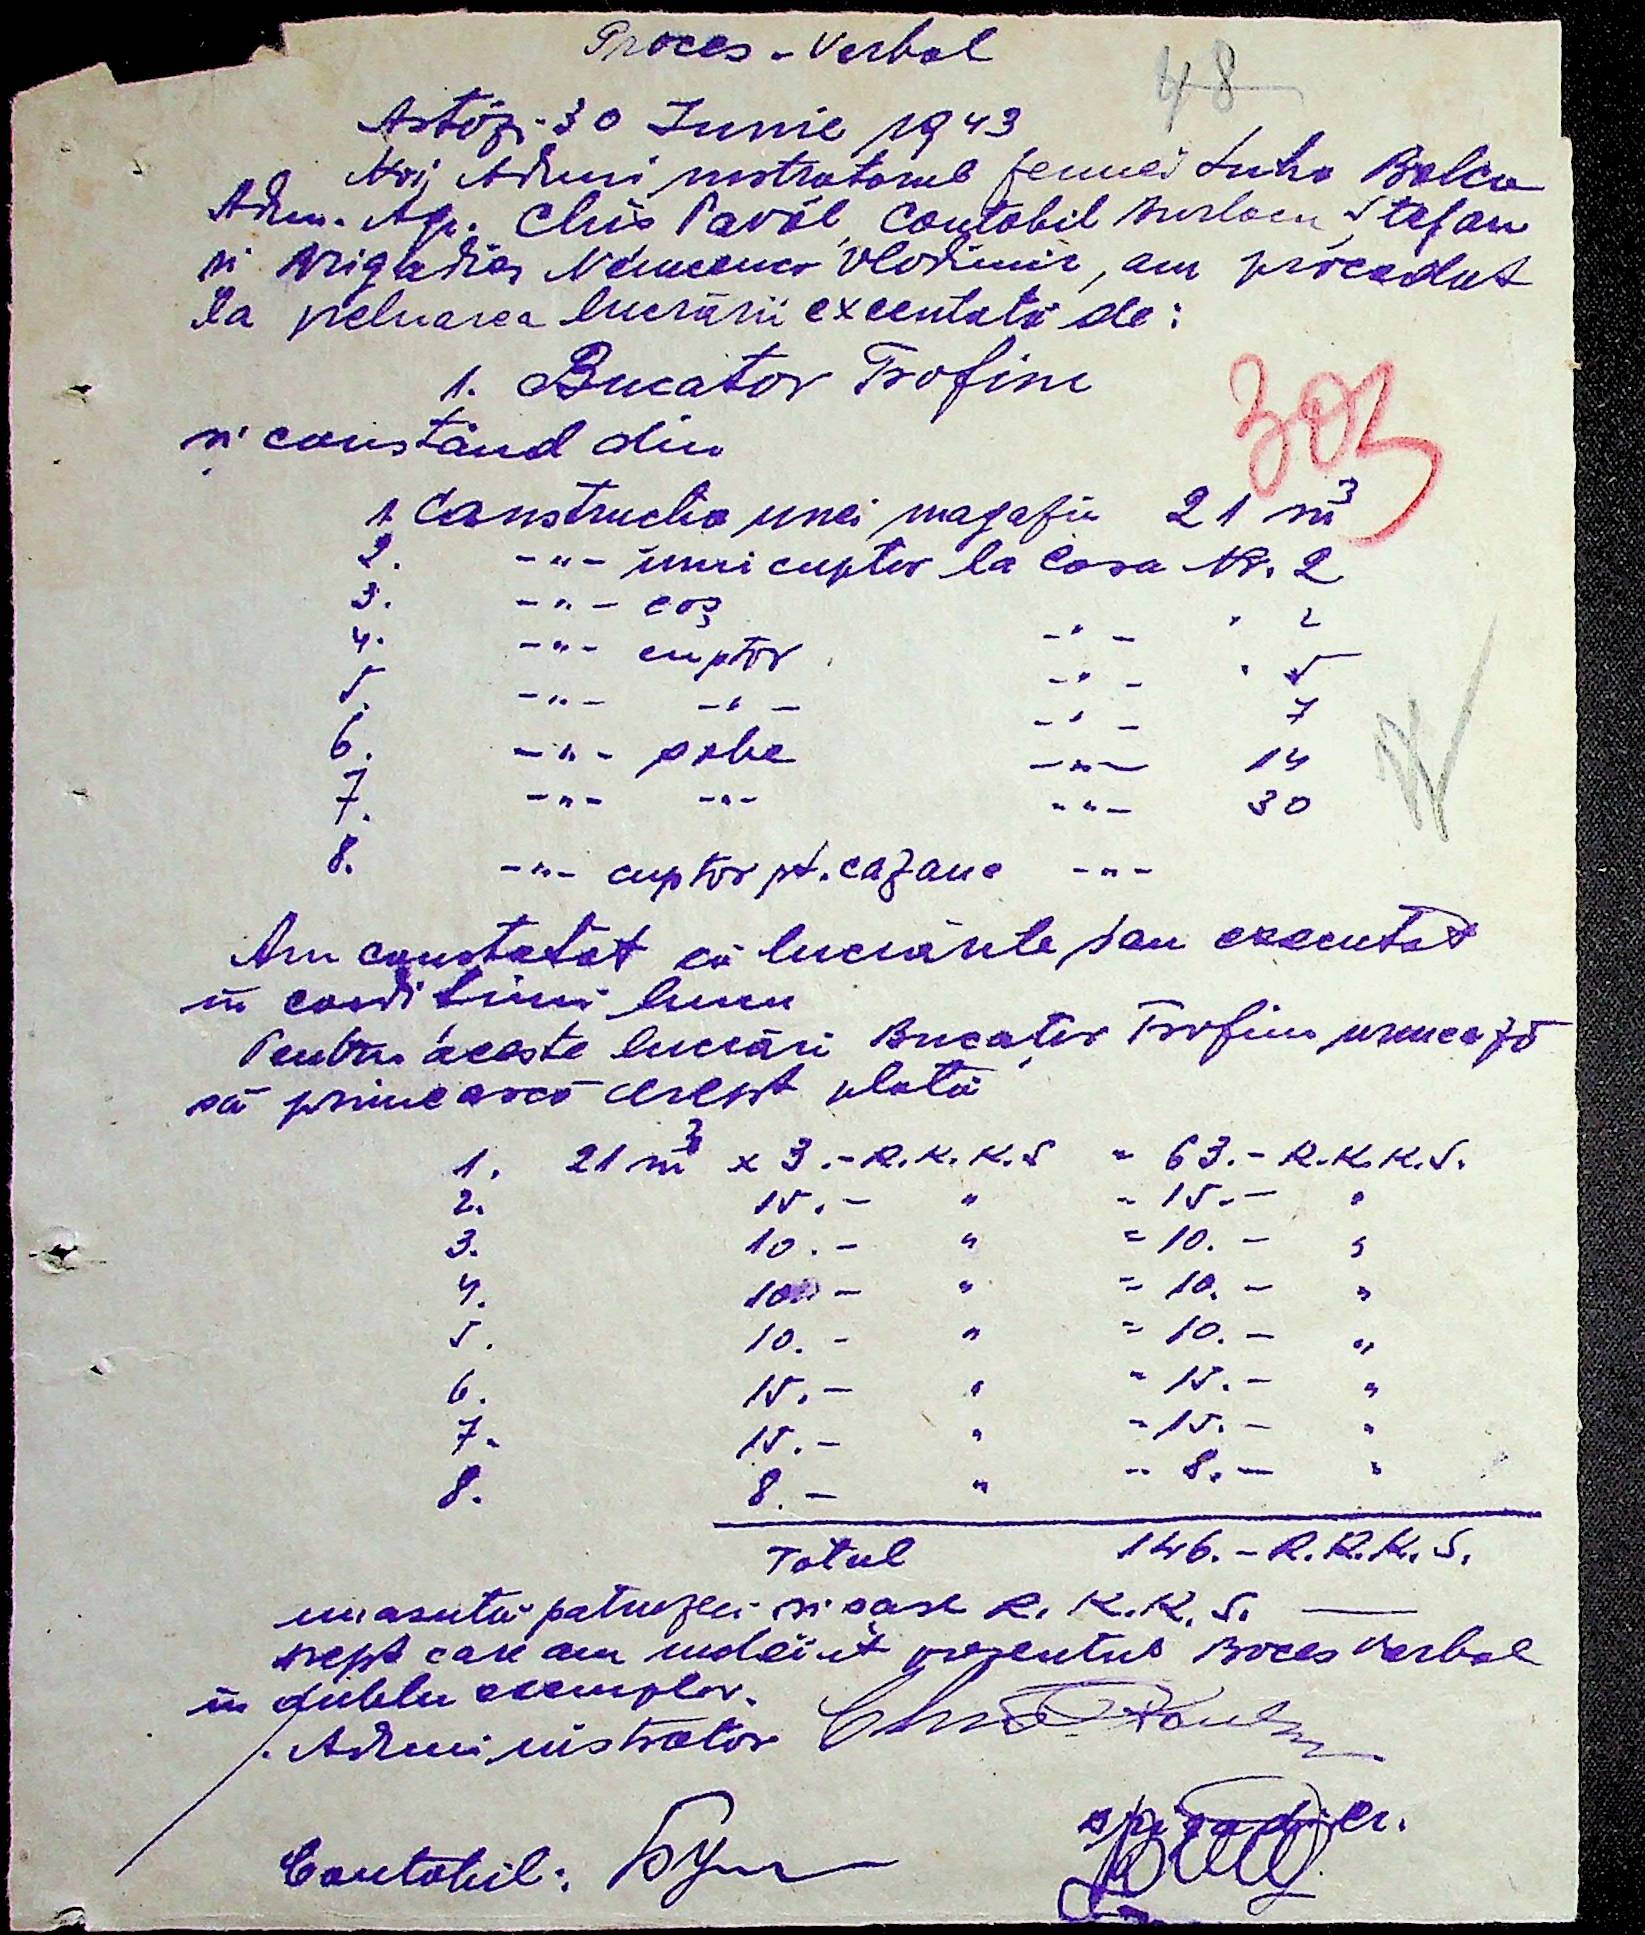 Proces-Verbal
48
Astăzi 30 Iunie 1943
Noi, Administratorul fermei Balca
Adm. Agr. Chis Pavăl, Contabil Burlacu Ștefan
și Brigadier Vladimir, am procedat
la preluarea lucrării executată de:
1. Bucator Trofim
303
și constând din
1. Constructia unei magazii 21 m³
2. -"- unui cuptor la Casa Nr. 2
3. -"- coș -"- " 2
4. -"- cuptor -"- " 5
5. -"- -"- -"- 7
6. -"- sobe -"- 14
7. -"- -"- -"- 30
8. -"- cuptor pt. cazane -"-
Am constatat că lucrările s'au executat
in conditiuni bune
Pentru aceste lucrări Bucator Trofim urmează
să primească drept plată
1. 21 m³ x 3.- R.K.K.S = 63.- R.K.K.S.
2. 15.- " = 15.- "
3. 10.- " = 10.- "
4. 10.- " = 10.- "
5. 10.- " = 10.- "
6. 15.- " = 15.- "
7. 15.- " = 15.- "
8. 8.- " = 8.- "
Total 146.- R.K.K.S.
unasuta patruzeci si șase R.K.K.S.
drept care am incheiat prezentul Proces Verbal
in dublu exemplar.
Administrator
Brigadier.
Contabil: